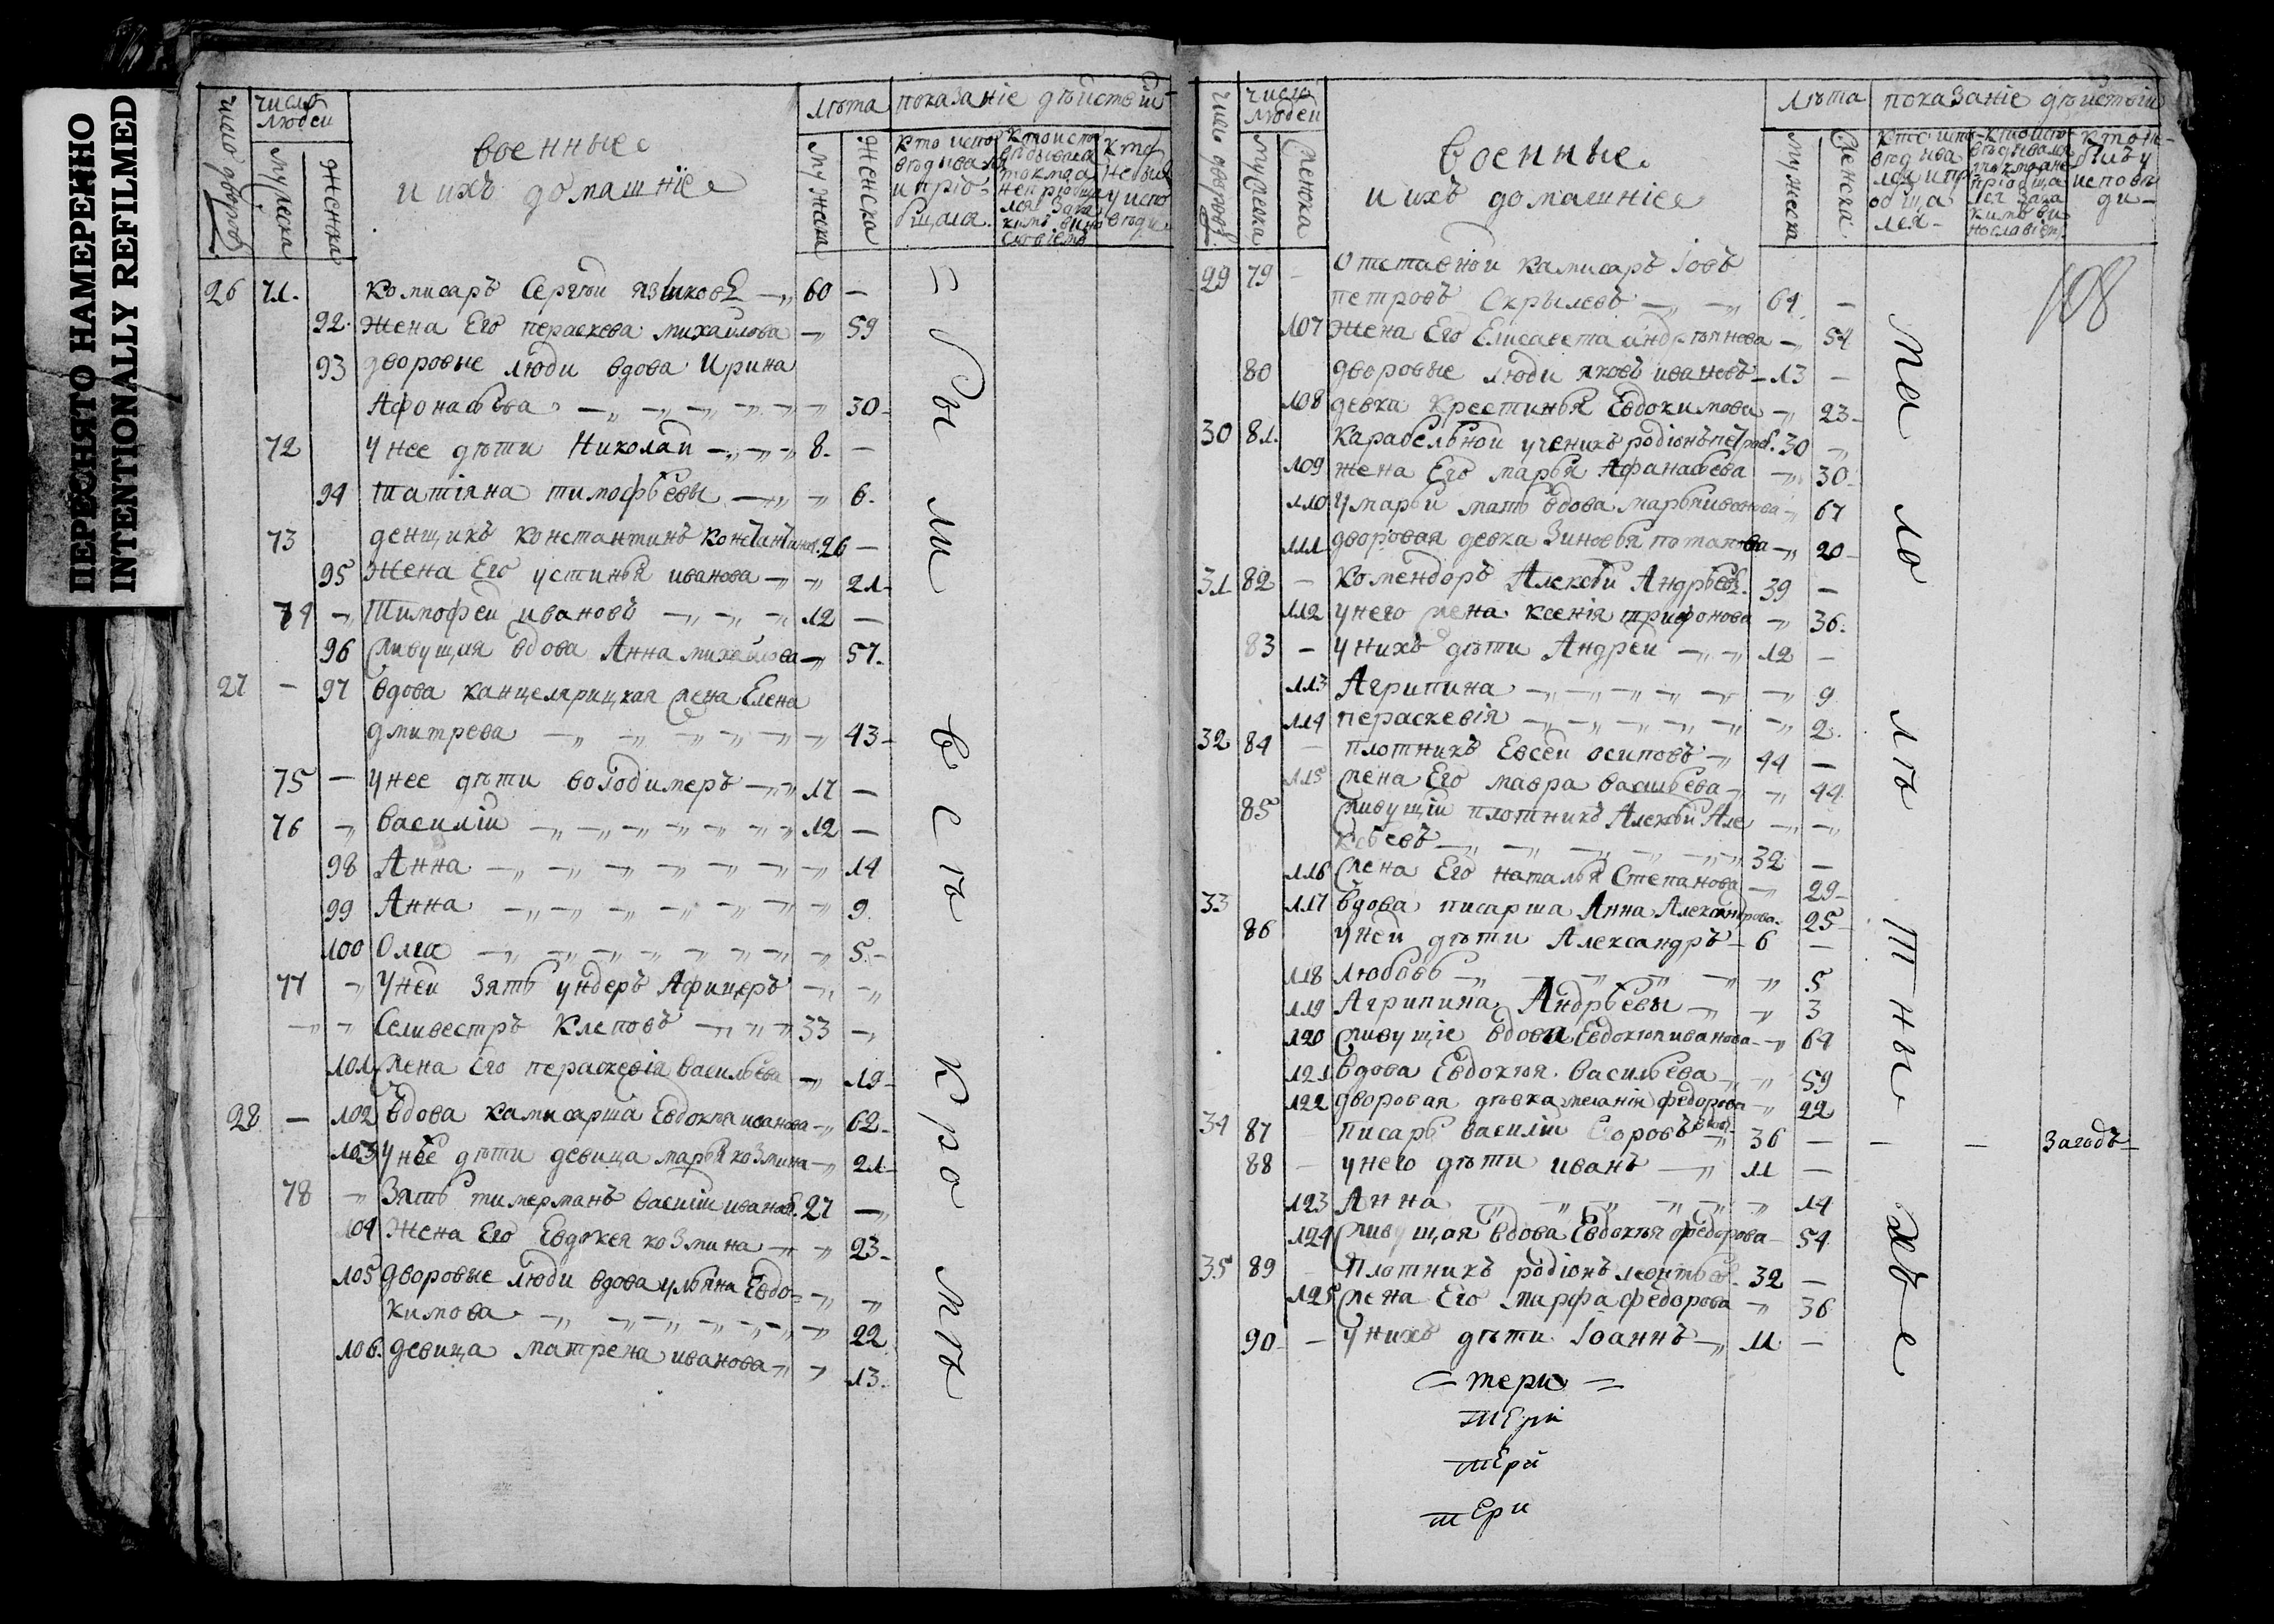 ПЕРЕСНЯТО НАМЕРЕННО
INTENTIONALLY REFILMED
число дворовъ
число людей
мужеска
женска
военные
и ихъ домашніе
лѣта
мужеска
женска
показаніе дѣйствій
26 71. комисаръ Сергѣй языковъ 60 —
92. жена Его пераскева михайлова 59
93 дворовые люди вдова Ирина
Афонасьева 30
72 у нее дѣти Николай 8. —
94 татіяна тимофѣевы 6.
73 денщикъ константинъ 26 —
95 жена Его устинья иванова 21
74 Тимофей ивановъ 12 —
96 живущия вдова Анна михайлова 57.
27 — 97 вдова канцелярицкая жена Елена
дмитрева 43
75 — у нее дѣти володимеръ 17 —
76 василій 12 —
98 Анна 14
99 Анна 9.
100 Олга 5.
77 у ней зять ундеръ Афицеръ
Селивестръ Клеповъ 33
101 жена Его пераскевія васильева 19
28 — 102 вдова камисарша Евдокѣя иванова 62
103 у нее дѣти девица марья козмина 21
78 зять тимерманъ василій иванов. 27
104 жена Его Евдокея козмина 23
105 дворовые люди вдова ульяна Евдо-
кимова 22
106. девица матрена иванова 13.
были всѣ кромѣ
число дворовъ
число людей
мужеска
женска
военные
и ихъ домашніе
лѣта
мужеска
женска
показаніе дѣйствій
108
29 79 — отставной камисаръ Іовъ
петровъ Скрылевъ 61. —
107 жена Его Елисавета андрѣянова 54
80 дворовые люди яковъ ивановъ 13 —
108 девка крестинья Евдокимова 23
30 81. карабельной ученикъ родіонъ 30
109 жена Его марья Афанасьева 30
110 у марьи мать вдова марья 67
111 дворовая девка Зиновья потапова 20
31 82 — комендоръ Алексѣй Андрѣевъ. 39 —
112 у него жена ксенія трифонова 36.
83 — у нихъ дѣти Андрей 12 —
113 Агрипина 9
114 пераскевія 2.
32 84 — плотникъ Евсей осиповъ 44 —
115 жена Его мавра васильева 44.
85 живущій плотникъ Алексѣй Але
ксѣевъ 32 —
116 жена Его наталья Степанова 29
33 117 вдова писарша Анна Александрова 25
86 у ней дѣти Александръ 6 —
118 любовь 5
119 Агрипина Андрѣевы 3
120 живущіе вдова Евдокія иванова 64
121 вдова Евдокѣя васильева 59
122 дворовая дѣвка меланія федорова 22
34 87 писарь василій Егоровъ 36 — — — Загодъ
88 — у него дѣти иванъ 11 —
123 Анна 14
124 живущая вдова Евдокѣя федорова 54
35 89 Плотникъ родіонъ леонтьевъ 32 —
125 жена Его марфа федорова 36
90 — у нихъ дѣти Іоаннъ 11 —
малолѣтныхъ
тери
тери
тери
тери